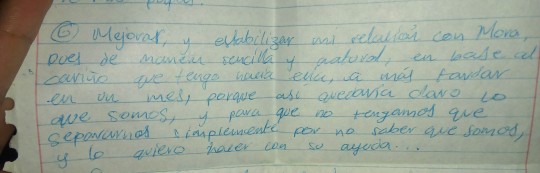 ⑥ Mejorar, y estabilizar mi relación con Mora,
pues de manera sencilla y natural, en base al
cariño que tengo hacia ella, a más tardar
en un mes, porque así quedaría claro lo
que somos, y para que no tengamos que
separarnos simplemente por no saber que somos,
y lo quiero hacer con su ayuda...